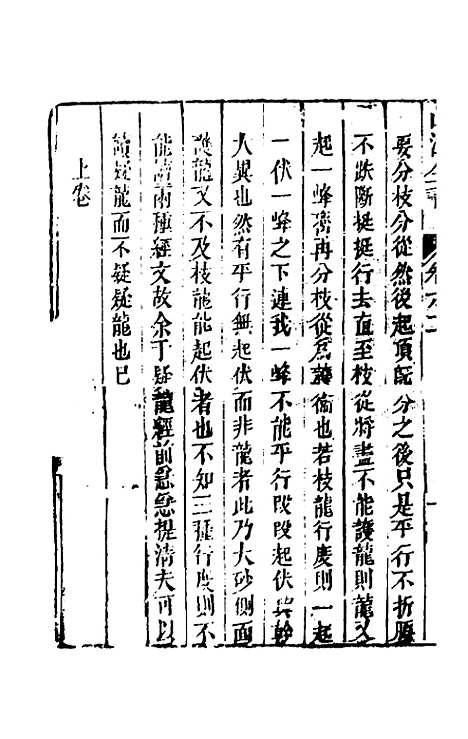 要分枝分從然後起頂既分之後只是平行不折腰
不跌斷挺挺行去直至枝從將盡不能護龍則龍又
起一峰巒再分枝從爲護衞也若枝龍行度則一起
一伏一峰之下連我一峰不能平行段段起伏與幹
大異也然有平行無起伏而非龍者此乃大砂側面
護龍又不及枝龍能起伏者也不知三種行度則不
能讀兩種經文故余于疑龍經前急急提清夫可以
讀疑龍而不疑疑龍也已
上卷